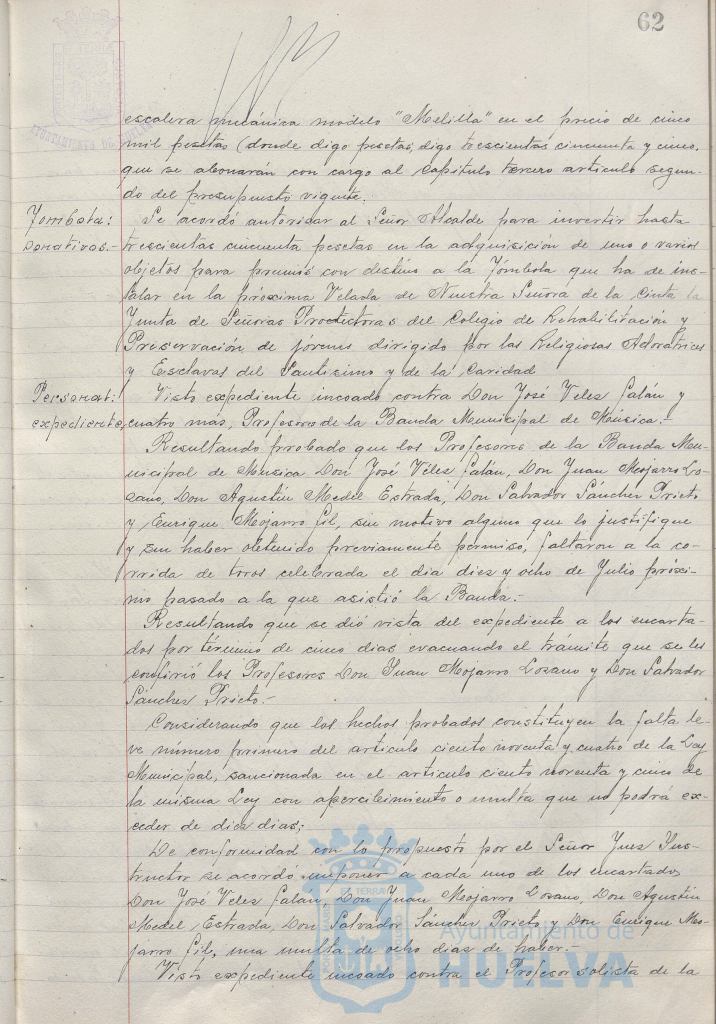 62
escalera mecánica modelo "Melilla" en el precio de cinco
mil pesetas (donde digo pesetas, digo trescientas cincuenta y cinco,
que se abonarán con cargo al Capitulo tercero articulo segun-
do del presupuesto vigente.
Tómbola:
donativos.-
Se acordó autorizar al Señor Alcalde para invertir hasta
trescientas cincuenta pesetas en la adquisición de uno o varios
objetos para premios con destino a la Tómbola que ha de ins-
talar en la próxima Velada de Nuestra Señora de la Cinta la
Junta de Señoras Protectoras del Colegio de Rehabilitación y
Preservación de jóvenes dirigido por las Religiosas Adoratrices
y Esclavas del Santisimo y de la Caridad
Personal:
expediente
Visto expediente incoado contra Don José Velez Galán y
cuatro más, Profesores de la Banda Municipal de Música.-
Resultando probado que los Profesores de la Banda Mu-
nicipal de Música Don José Vélez Galán, Don Juan Mojarro Lo-
zano, Don Agustin Medel Estrada, Don Salvador Sánchez Prieto
y Enrique Mojarro Gil, sin motivo alguno que lo justifique
y sin haber obtenido previamente permiso, faltaron a la co-
rrida de toros celebrada el dia diez y ocho de Julio próxi-
mo pasado a la que asistió la Banda.-
Resultando que se dió vista del expediente a los encarta-
dos por término de cinco dias evacuando el trámite que se les
confirió los Profesores Don Juan Mojarro Lozano y Don Salvador
Sánchez Prieto.-
Considerando que los hechos probados constituyen la falta le-
ve número primero del articulo ciento noventa y cuatro de la Ley
Municipal, sancionada en el articulo ciento noventa y cinco de
la misma Ley con apercibimiento o multa que no podrá ex-
ceder de diez dias;
De conformidad con lo propuesto por el Señor Juez Ins-
tructor se acordó imponer a cada uno de los encartados
Don José Velez Galán, Don Juan Mojarro Lozano, Don Agustin
Medel Estrada, Don Salvador Sánchez Prieto y Don Enrique Mo-
jarro Gil, una multa de ocho dias de haber.-
Visto expediente incoado contra el Profesor solista de la
Ayuntamiento de
HUELVA